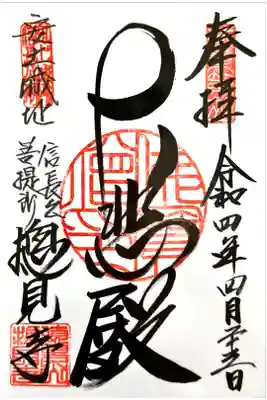 奉拝
令和四年四月廿三日
大悲殿
安土城址
信長公
菩提所
摠見寺